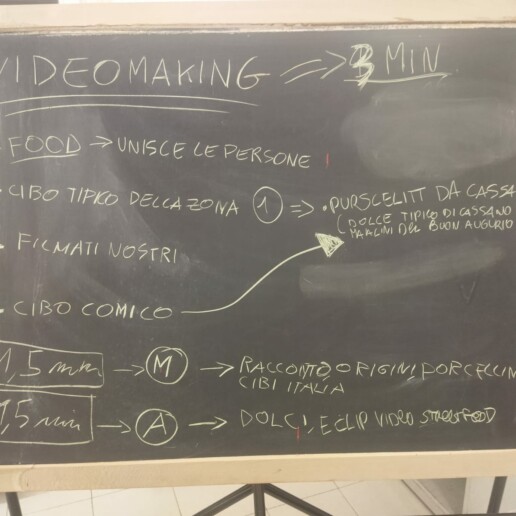 VIDEOMAKING => 3 MIN
FOOD → UNISCE LE PERSONE
CIBO TIPICO DELLA ZONA ① => • PURSCELITT DA CASSA
(DOLCE TIPICO DI CASSANO
DEL BUON AUGURIO
• FILMATI NOSTRI
• CIBO COMICO
1,5 min → M → RACCONTO, ORIGINI, PORCELLIN
CIBI ITALIA
1,5 min → A → DOLCI, E CLIP VIDEO STREET FOOD